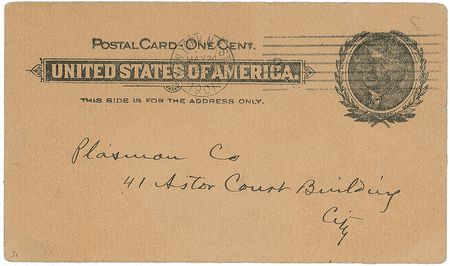 POSTAL CARD-ONE CENT.
UNITED STATES OF AMERICA.
THIS SIDE IS FOR THE ADDRESS ONLY.
1901
Plasmon Co
41 Astor Court Building
City